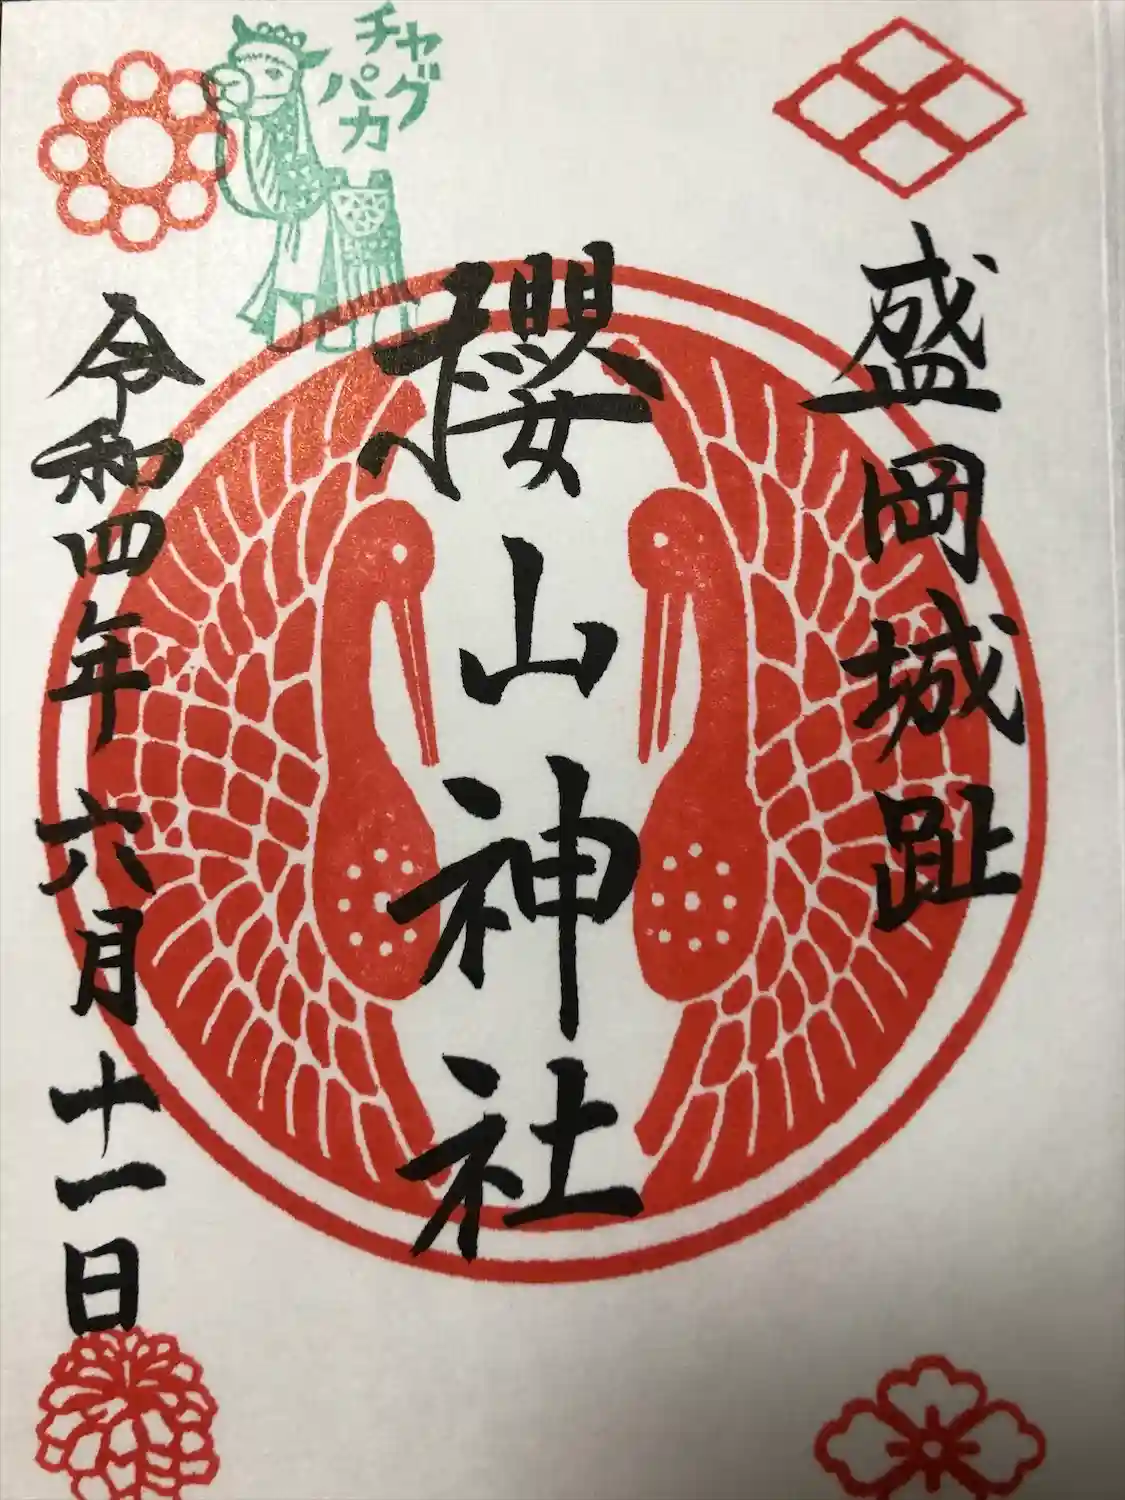 盛岡城趾
櫻山神社
令和四年六月十一日
チャグ
パカ